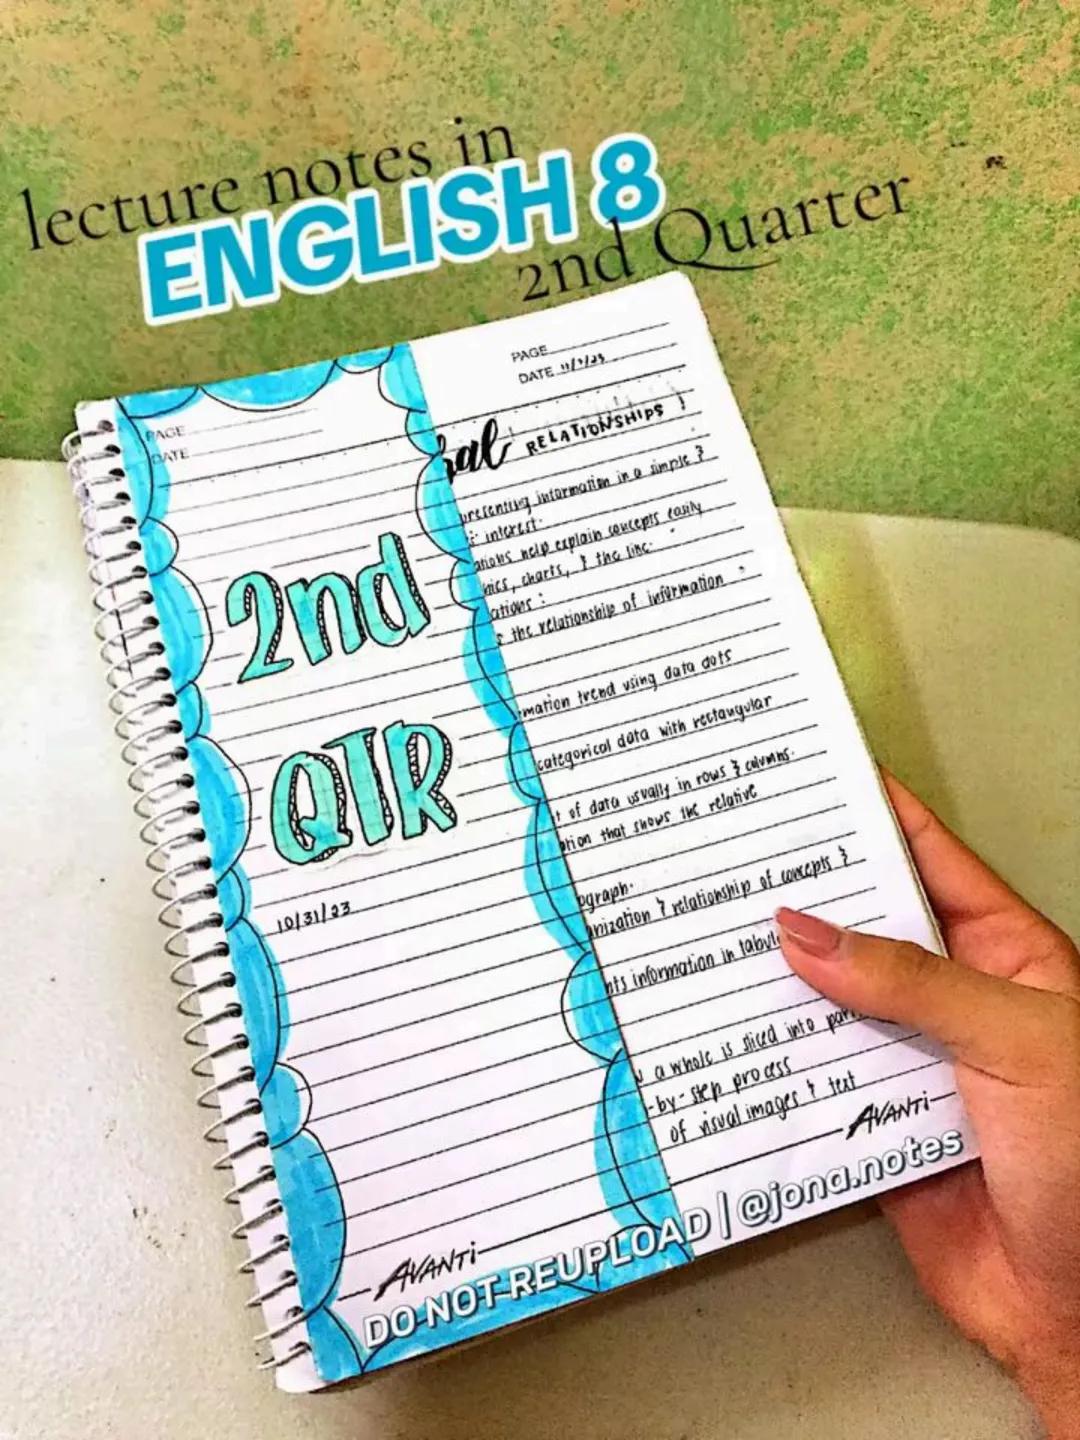 lecture notes in
ENGLISH 8
2nd Quarter
PAGE
DATE
2nd
QTR
10/31/23
AVANTi
PAGE
DATE 11/7/23
RELATIONSHIPS
resenting information in a simple &
interest.
ations help explain concepts easily
hics, charts, & the line.
ations :
s the relationship of information
mation trend using data dots
categorical data with rectangular
t of data usually in rows & columns.
tion that shows the relative
ograph.
anization & relationship of concepts &
nts information in tabul
a whole is sliced into par
-by-step process
of visual images & text
AVANTi
DO NOT REUPLOAD | @jona.notes